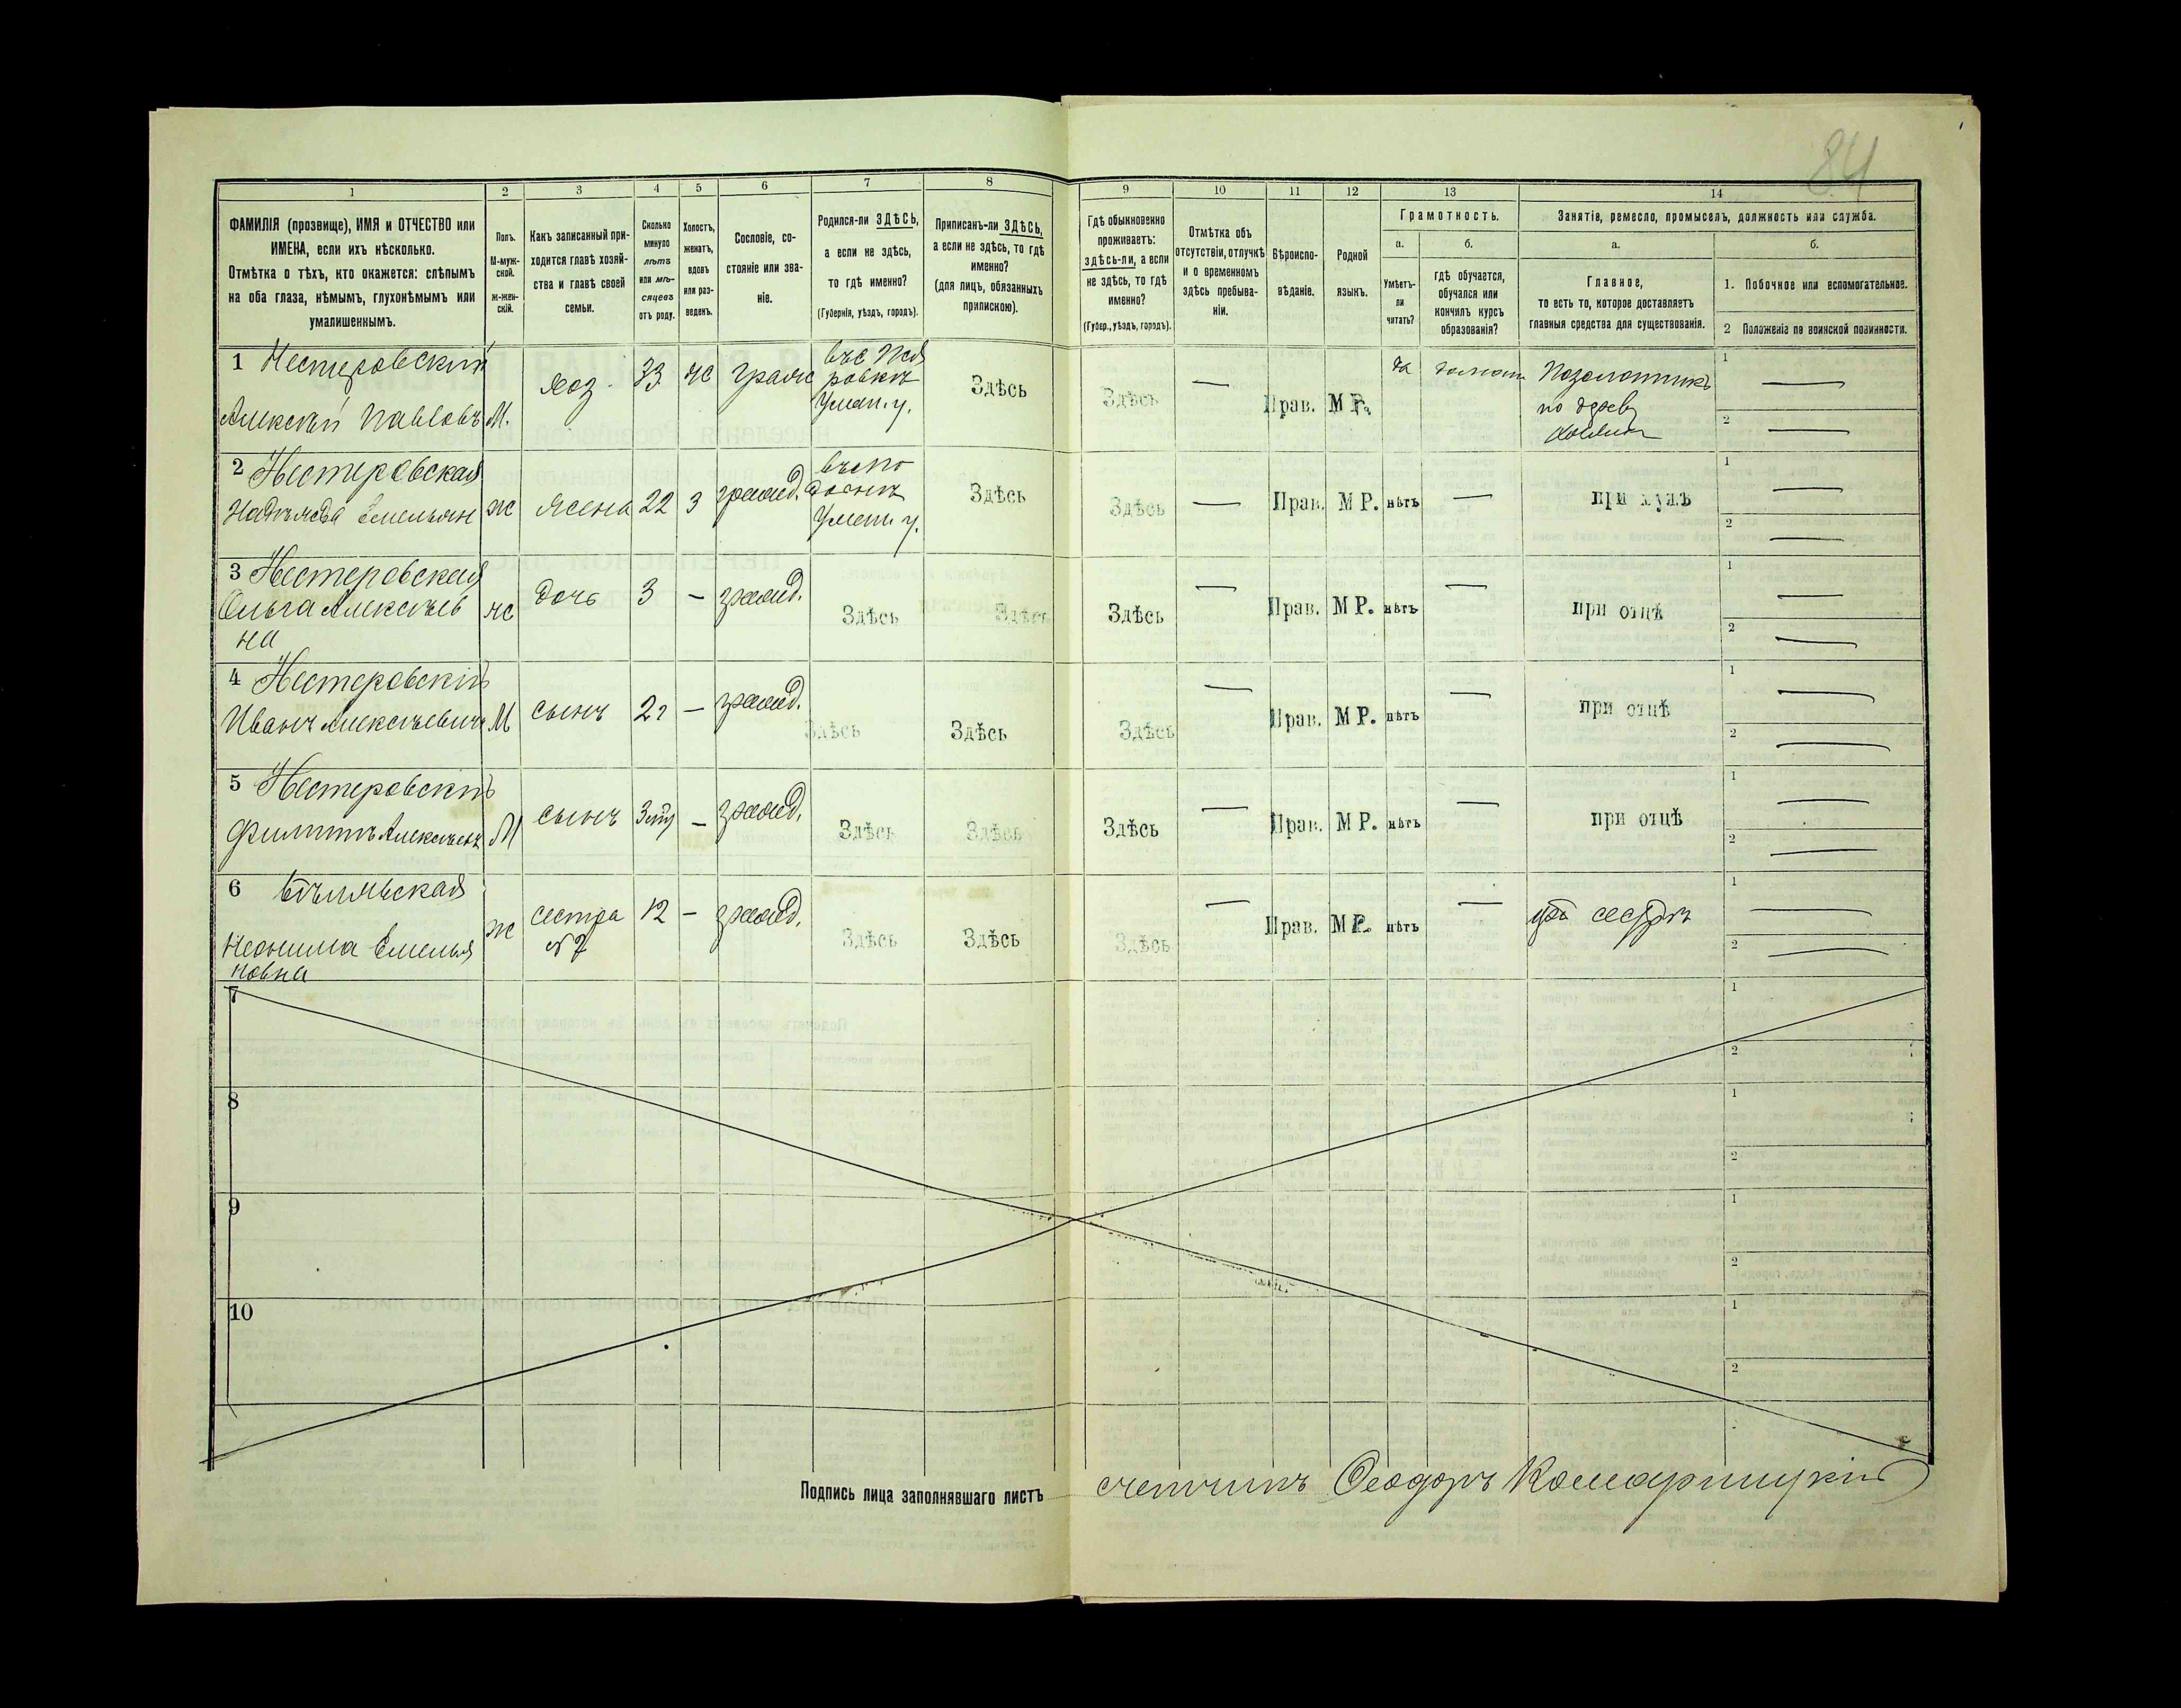 84
1 2 3 4 5 6 7 8 9 10 11 12 13 14
ФАМИЛІЯ (прозвище), ИМЯ и ОТЧЕСТВО или
ИМЕНА, если ихъ нѣсколько.
Отмѣтка о тѣхъ, кто окажется: слѣпымъ
на оба глаза, нѣмымъ, глухонѣмымъ или
умалишеннымъ.
Полъ.
М-муж-
ской.
ж-жен-
скій.
Какъ записанный при-
ходится главѣ хозяй-
ства и главѣ своей
семьи.
Сколько
минуло
лѣтъ
или мѣ-
сяцевъ
отъ роду.
Холостъ,
женатъ,
вдовъ
или раз-
веденъ.
Сословіе, со-
стояніе или зва-
ніе.
Родился-ли ЗДѢСЬ,
а если не здѣсь,
то гдѣ именно?
(Губернія, уѣздъ, городъ).
Приписанъ-ли ЗДѢСЬ,
а если не здѣсь, то гдѣ
именно?
(для лицъ, обязанныхъ
припискою).
Гдѣ обыкновенно
проживаетъ:
здѣсь-ли, а если
не здѣсь, то гдѣ
именно?
(Губер., уѣздъ, городъ).
Отмѣтка объ
отсутствіи, отлучкѣ
и о временномъ
здѣсь пребыва-
ніи.
Вѣроиспо-
вѣданіе.
Родной
языкъ.
Грамотность.
а.
Умѣетъ-
ли
читать?
б.
гдѣ обучается,
обучался или
кончилъ курсъ
образованія?
Занятіе, ремесло, промыселъ, должность или служба.
а.
Главное,
то есть то, которое доставляетъ
главныя средства для существованія.
б.
1. Побочное или вспомогательное.
2 Положеніе по воинской повинности.
1 Нестеровскій
Алексѣй Павловъ М. хоз. 33 ж Уман. у. Здѣсь Здѣсь — Прав. М Р. да Позолотникъ
по дереву
1 —
2 —
2 Нестеровская
Надѣжда Емельян ж жена 22 з гражд. Уман. у. Здѣсь Здѣсь — Прав. М Р. нѣтъ — при мужѣ
1 —
2 —
3 Нестеровская
Ольга Алексѣев
на ж дочь 3 — гражд. Здѣсь Здѣсь Здѣсь — Прав. М Р. нѣтъ — при отцѣ
1 —
2 —
4 Нестеровскій
Иванъ Алексѣевичъ М сынъ 2г — гражд. Здѣсь Здѣсь Здѣсь — Прав. М Р. нѣтъ — при отцѣ
1 —
2 —
5 Нестеровскій
Филиппъ М сынъ — гражд. Здѣсь Здѣсь Здѣсь — Прав. М Р. нѣтъ — при отцѣ
1 —
2 —
6
Емелья
новна ж сестра
12 — гражд. Здѣсь Здѣсь Здѣсь — Прав. М Р. нѣтъ — сестрѣ
1 —
2 —
7 1
2
8 1
2
9 1
2
10 1
2
Подпись лица заполнявшаго листъ счетчикъ Ѳеодоръ Комарницкій